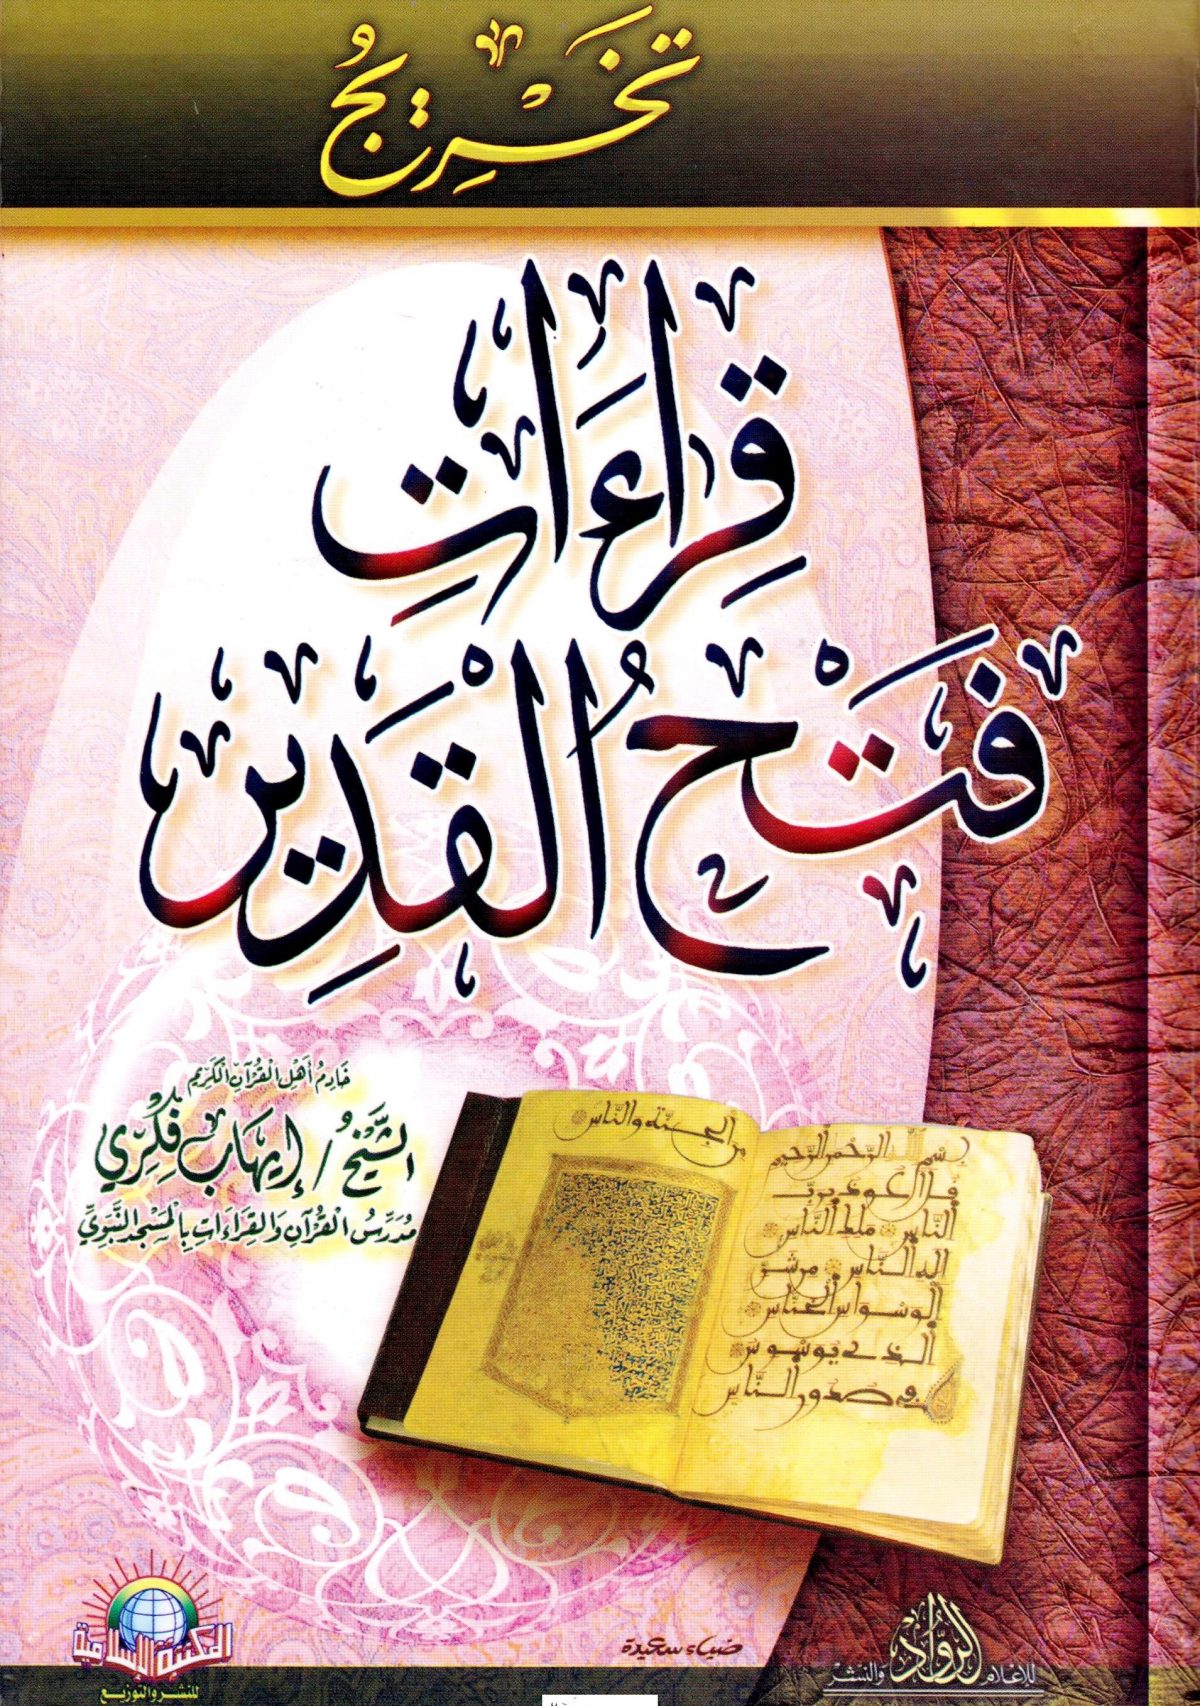 تخريجُ
قِراءَاتِ
فَتْحُ القَدِير
خَادِمُ أَهْلِ القُرْآنِ الكَرِيم
الشَّيْخُ / إيهَاب فِكْرِي
مُدَرِّسُ القُرْآنِ وَالقِرَاءَاتِ بِالمَسْجِدِ النَّبَوِيِّ
من الجنة والناس
بسم الله الرحمن الرحيم
قل أعوذ برب
الناس ملك الناس
إله الناس من شر
الوسواس الخناس
الذي يوسوس
في صدور الناس
المكتبة الإسلامية
للنشر والتوزيع
ضياء سعيدة
الرواد
للإعلام والنشر